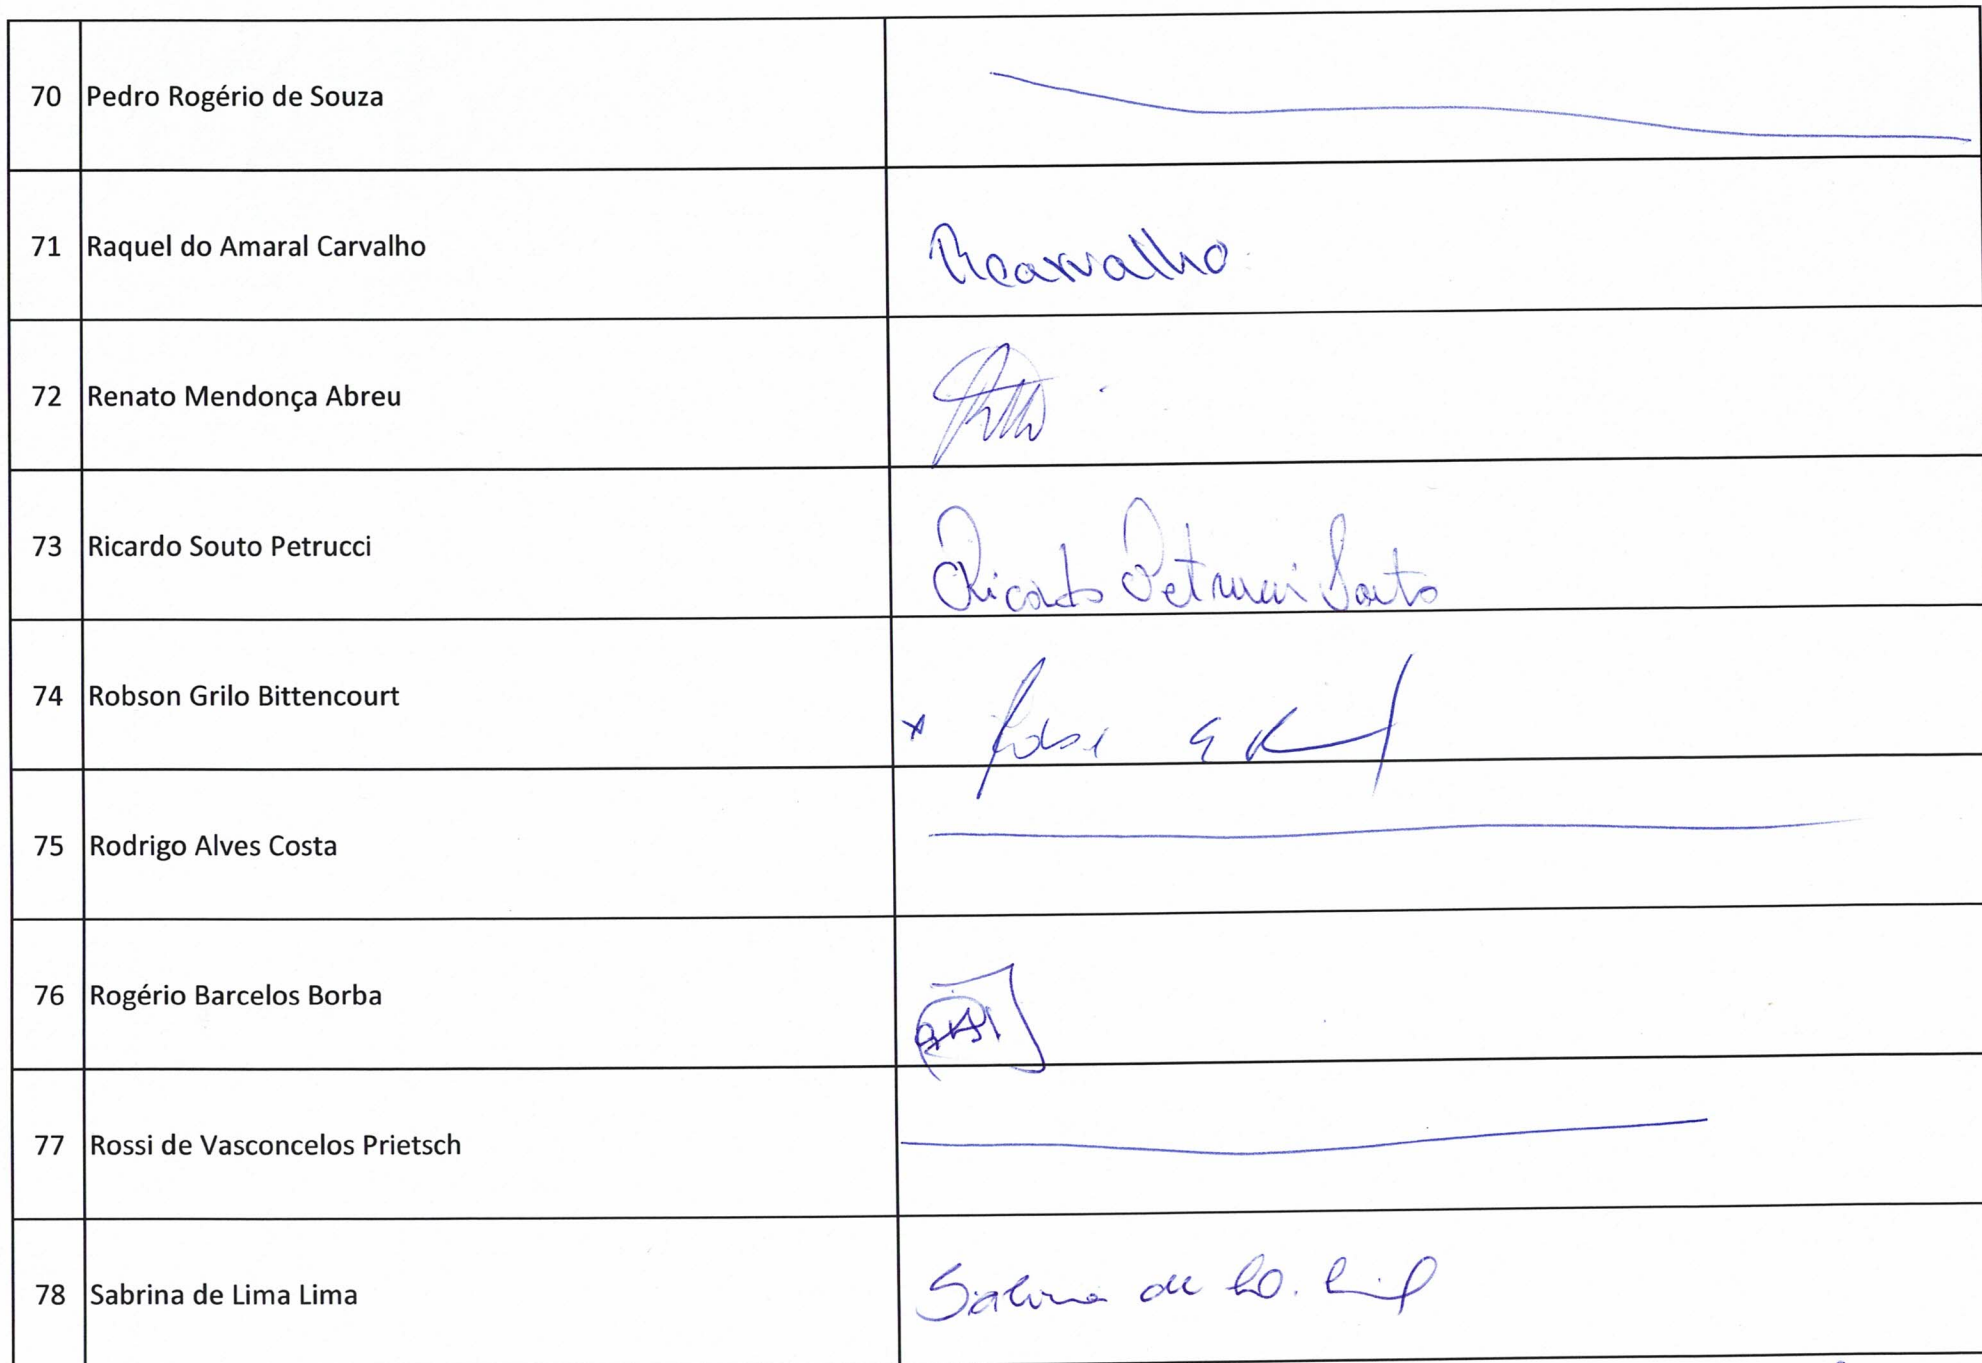 70 Pedro Rogério de Souza
71 Raquel do Amaral Carvalho Rcarvalho
72 Renato Mendonça Abreu
73 Ricardo Souto Petrucci Ricardo Petrucci Souto
74 Robson Grilo Bittencourt x
75 Rodrigo Alves Costa
76 Rogério Barcelos Borba
77 Rossi de Vasconcelos Prietsch
78 Sabrina de Lima Lima Sabrina de